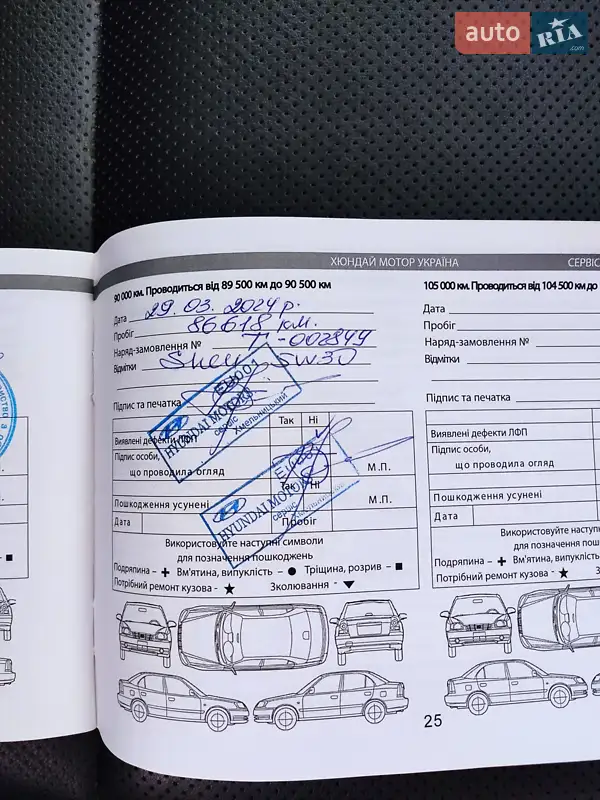 auto RIA .com
ХЮНДАЙ МОТОР УКРАЇНА
СЕРВІС
90 000 км. Проводиться від 89 500 км до 90 500 км
Дата 29.03.2024 р.
Пробіг 86618 км.
Наряд-замовлення № Т-002849
Відмітки Shell 5W30
Підпис та печатка
HYUNDAI MOTORS
сервіс
Хмельницький
Так Ні
Виявлені дефекти ЛФП
Підпис особи,
що проводила огляд
М.П.
Так Ні
Пошкодження усунені
М.П.
Дата
Пробіг
HYUNDAI MOTORS
сервіс
Використовуйте наступні символи
для позначення пошкоджень
Подряпина – + Вм'ятина, випуклість – ● Тріщина, розрив – ■
Потрібний ремонт кузова - ★ Зколювання - ▼
25
105 000 км. Проводиться від 104 500 км до
Дата
Пробіг
Наряд-замовлення №
Відмітки
Підпис та печатка
Виявлені дефекти ЛФП
Підпис особи,
що проводила огляд
Пошкодження усунені
Дата
Використовуйте на
для позначення пош
Подряпина – + Вм'ятина, випуклість –
Потрібний ремонт кузова - ★